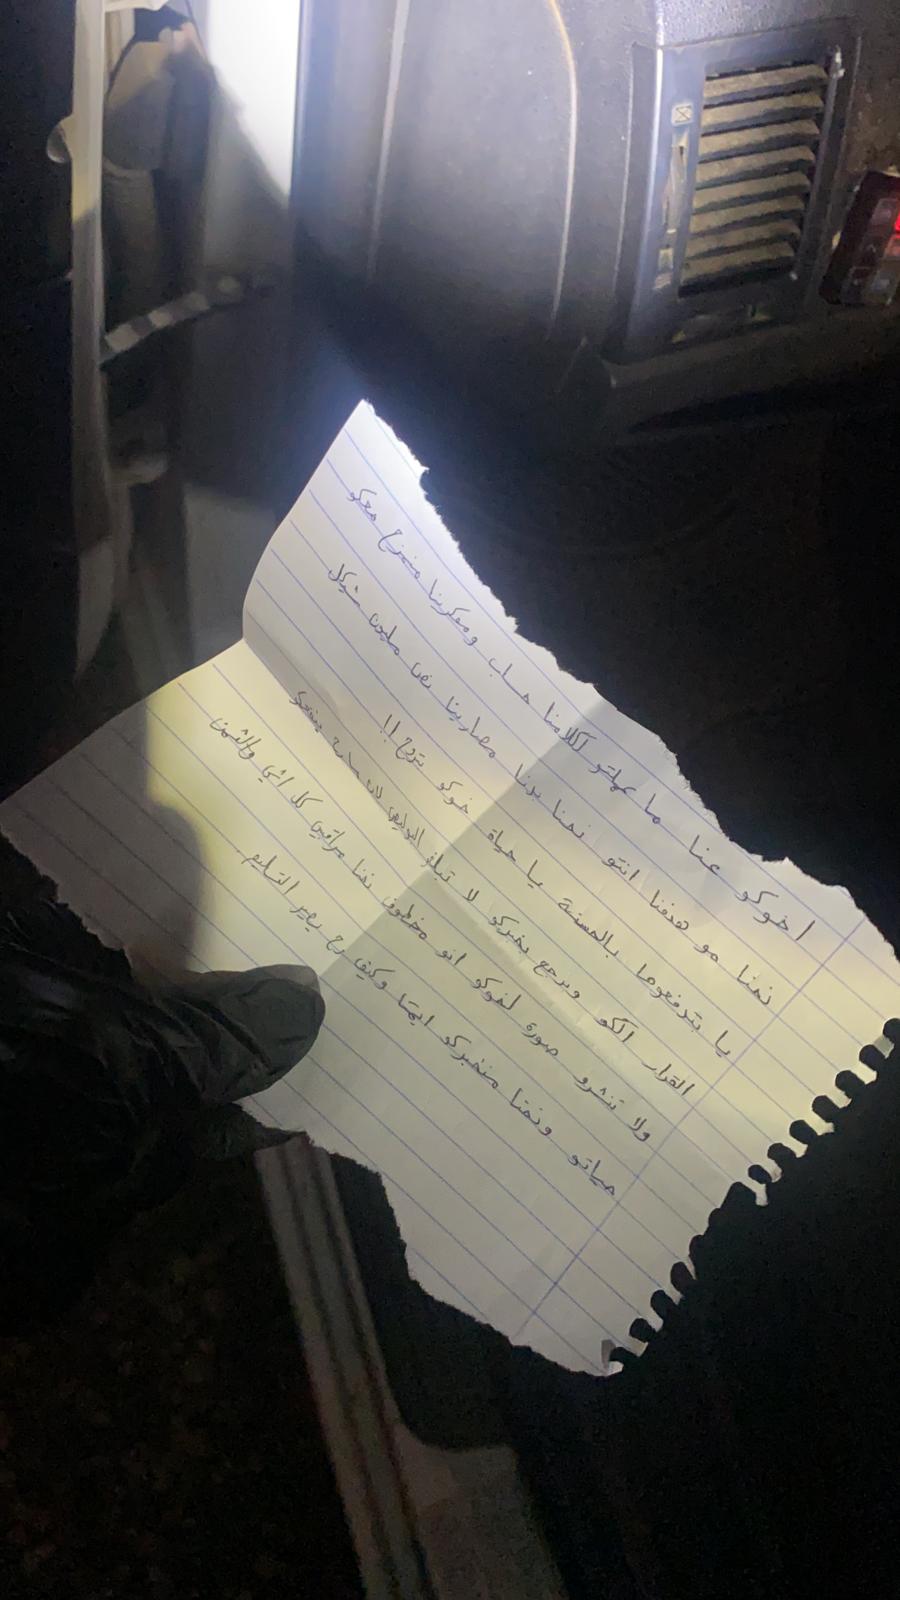 اخوكو عنا ما عملتو لكلامنا حساب ومفكرينا منمزح معكو
نحنا مو هدفنا انتو نحنا بدنا مصارينا نص مليون شيكل
يا بتدفعوها بالمسنة يا حياة خوكو بتروح !!
القرار الكو وبرجع بخبركو لا تبلغو البوليس لان مارح ينفعكو
ولا تنشرو صورة لخوكو انو مخطوف نحنا مراقبين كل اشي والثمن
حياتو ونحنا منخبركو ايمتا وكيف رح يصير التسليم